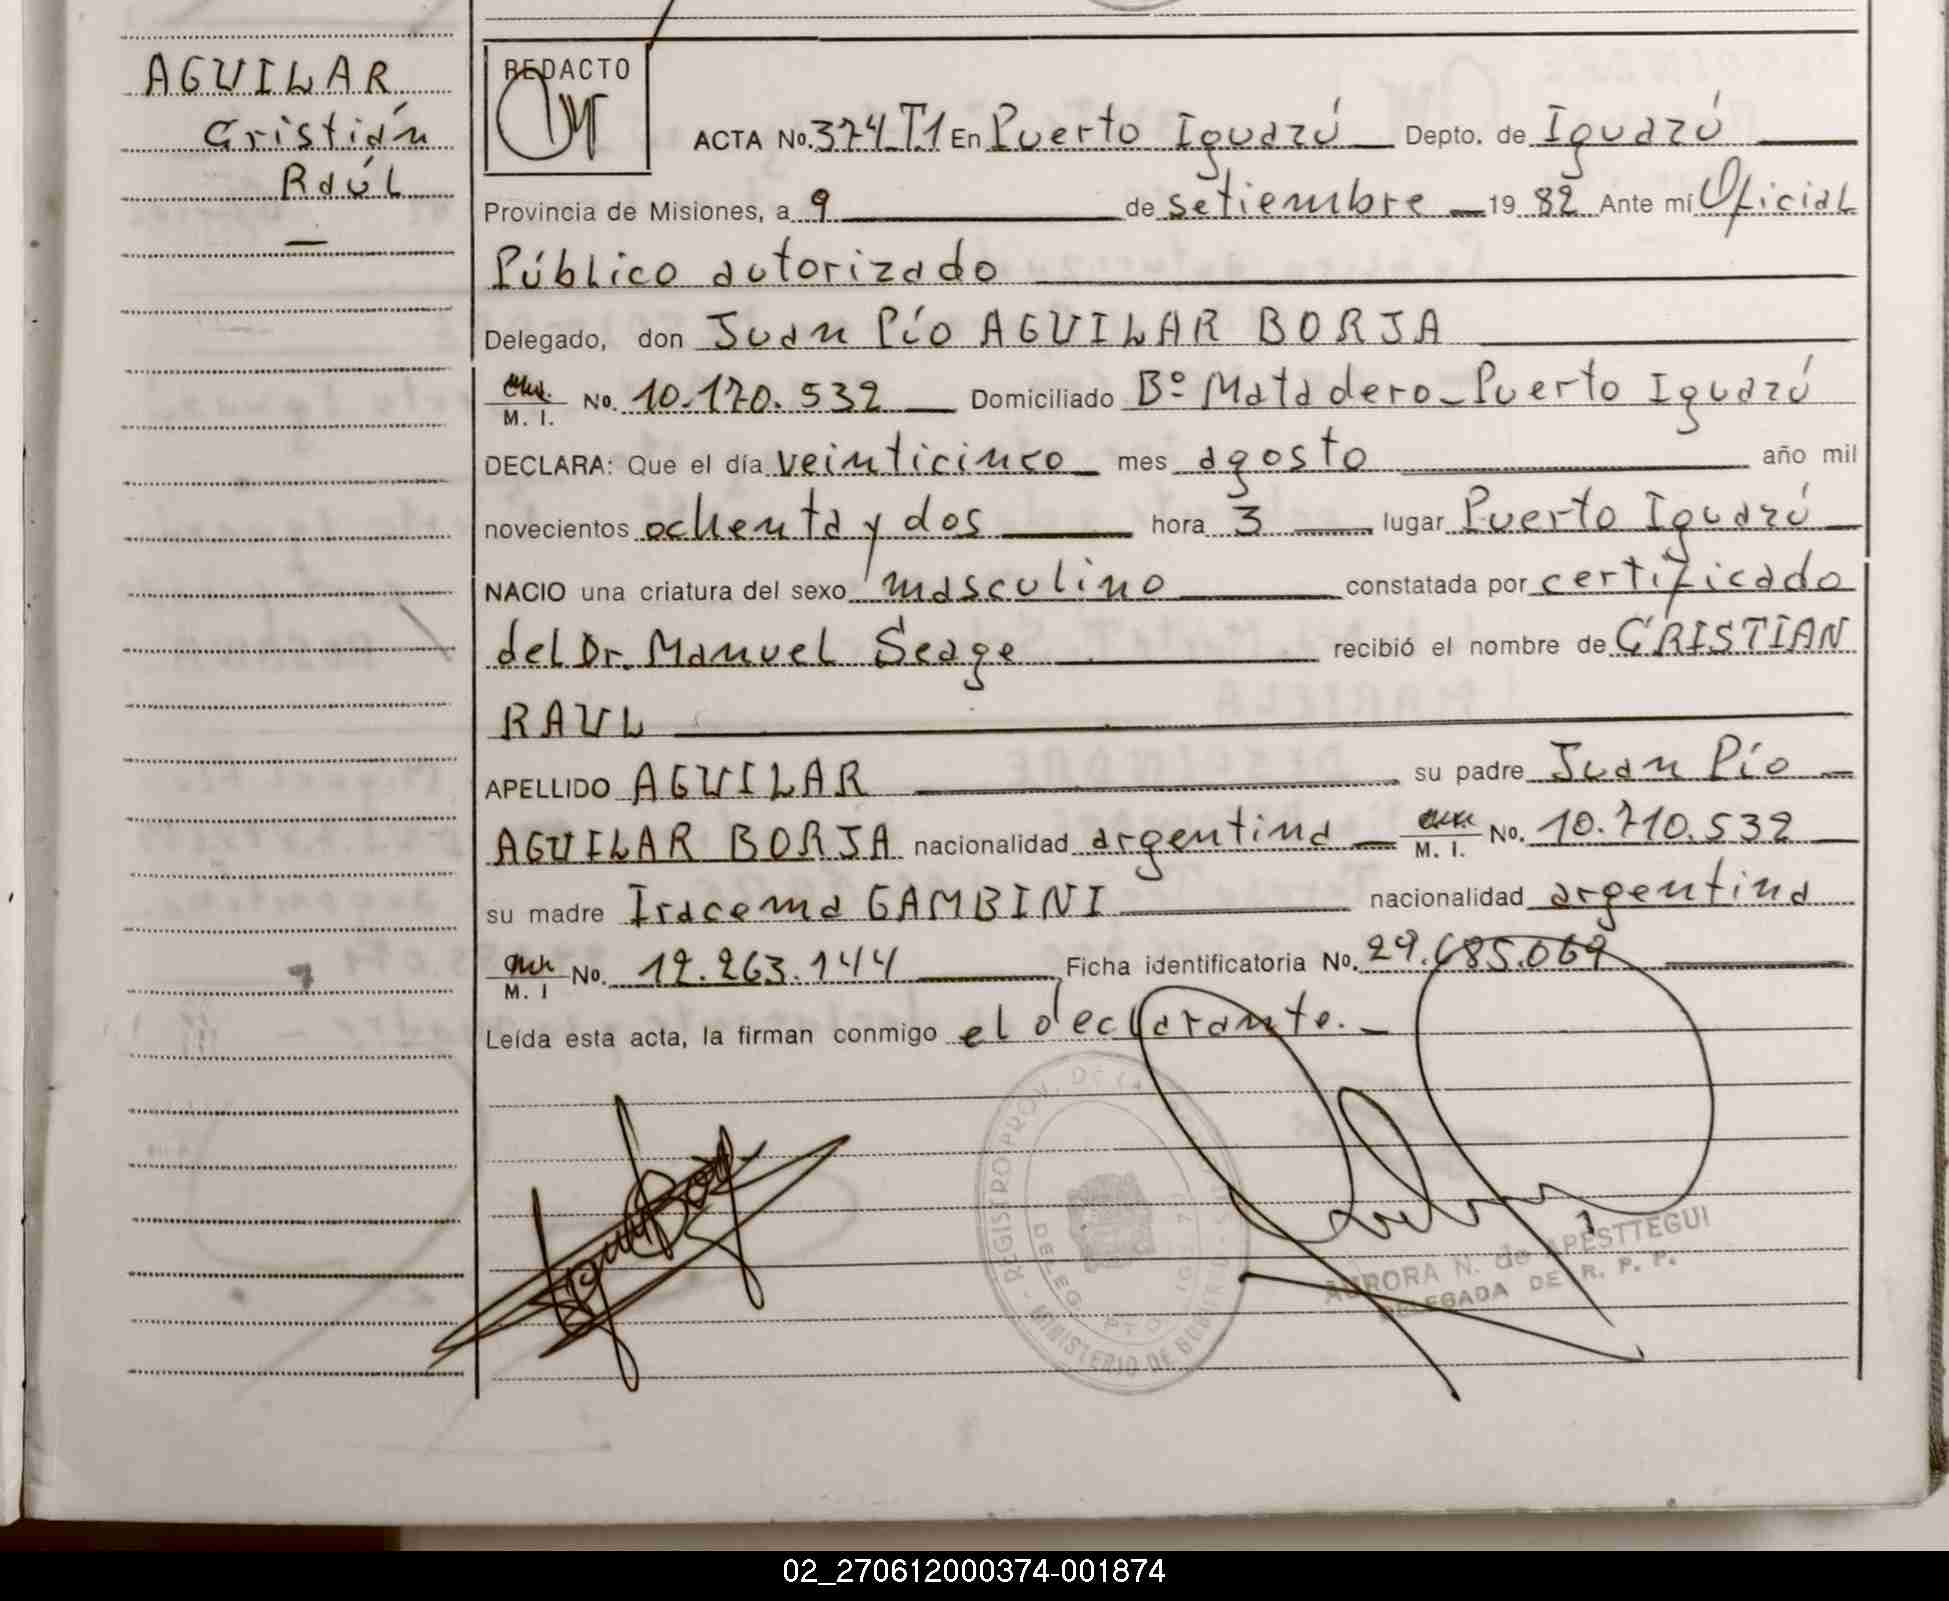 AGUILAR
Cristián
Raúl
REDACTO
ACTA No. 374 T.1 En Puerto Iguazú Depto. de Iguazú
Provincia de Misiones, a 9 de setiembre 19 82 Ante mí Oficial
Público autorizado
Delegado, don Juan Pío AGUILAR BORJA
M. I. No. 10.170.532 Domiciliado Bº Matadero - Puerto Iguazú
DECLARA: Que el día veinticinco mes agosto año mil
novecientos ochenta y dos hora 3 lugar Puerto Iguazú
NACIO una criatura del sexo masculino constatada por certificado
del Dr. Manuel Seage recibió el nombre de CRISTIAN
RAUL
APELLIDO AGUILAR su padre Juan Pío
AGUILAR BORJA nacionalidad argentina M. I. No. 10.710.532
su madre Iracema GAMBINI nacionalidad argentina
M. I No. 12.263.144 Ficha identificatoria No. 29.685.069
Leída esta acta, la firman conmigo el declarante. -
REGISTRO PROV. DE LA
DELEG.
MINISTERIO DE GOBIERNO
AURORA N. de APESTTEGUI
DELEGADA DE R. P. P.
02_270612000374-001874